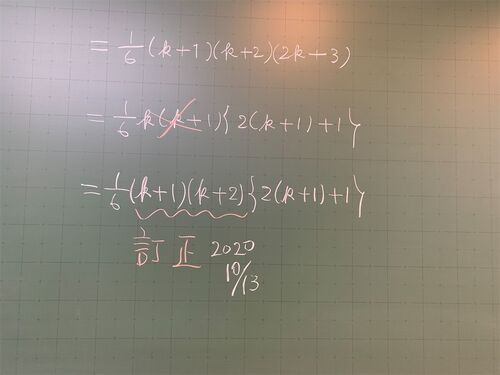 = 1/6 (k+1)(k+2)(2k+3)
= 1/6 k(k+1){2(k+1)+1}
= 1/6 (k+1)(k+2){2(k+1)+1}
訂正 2020
10/13